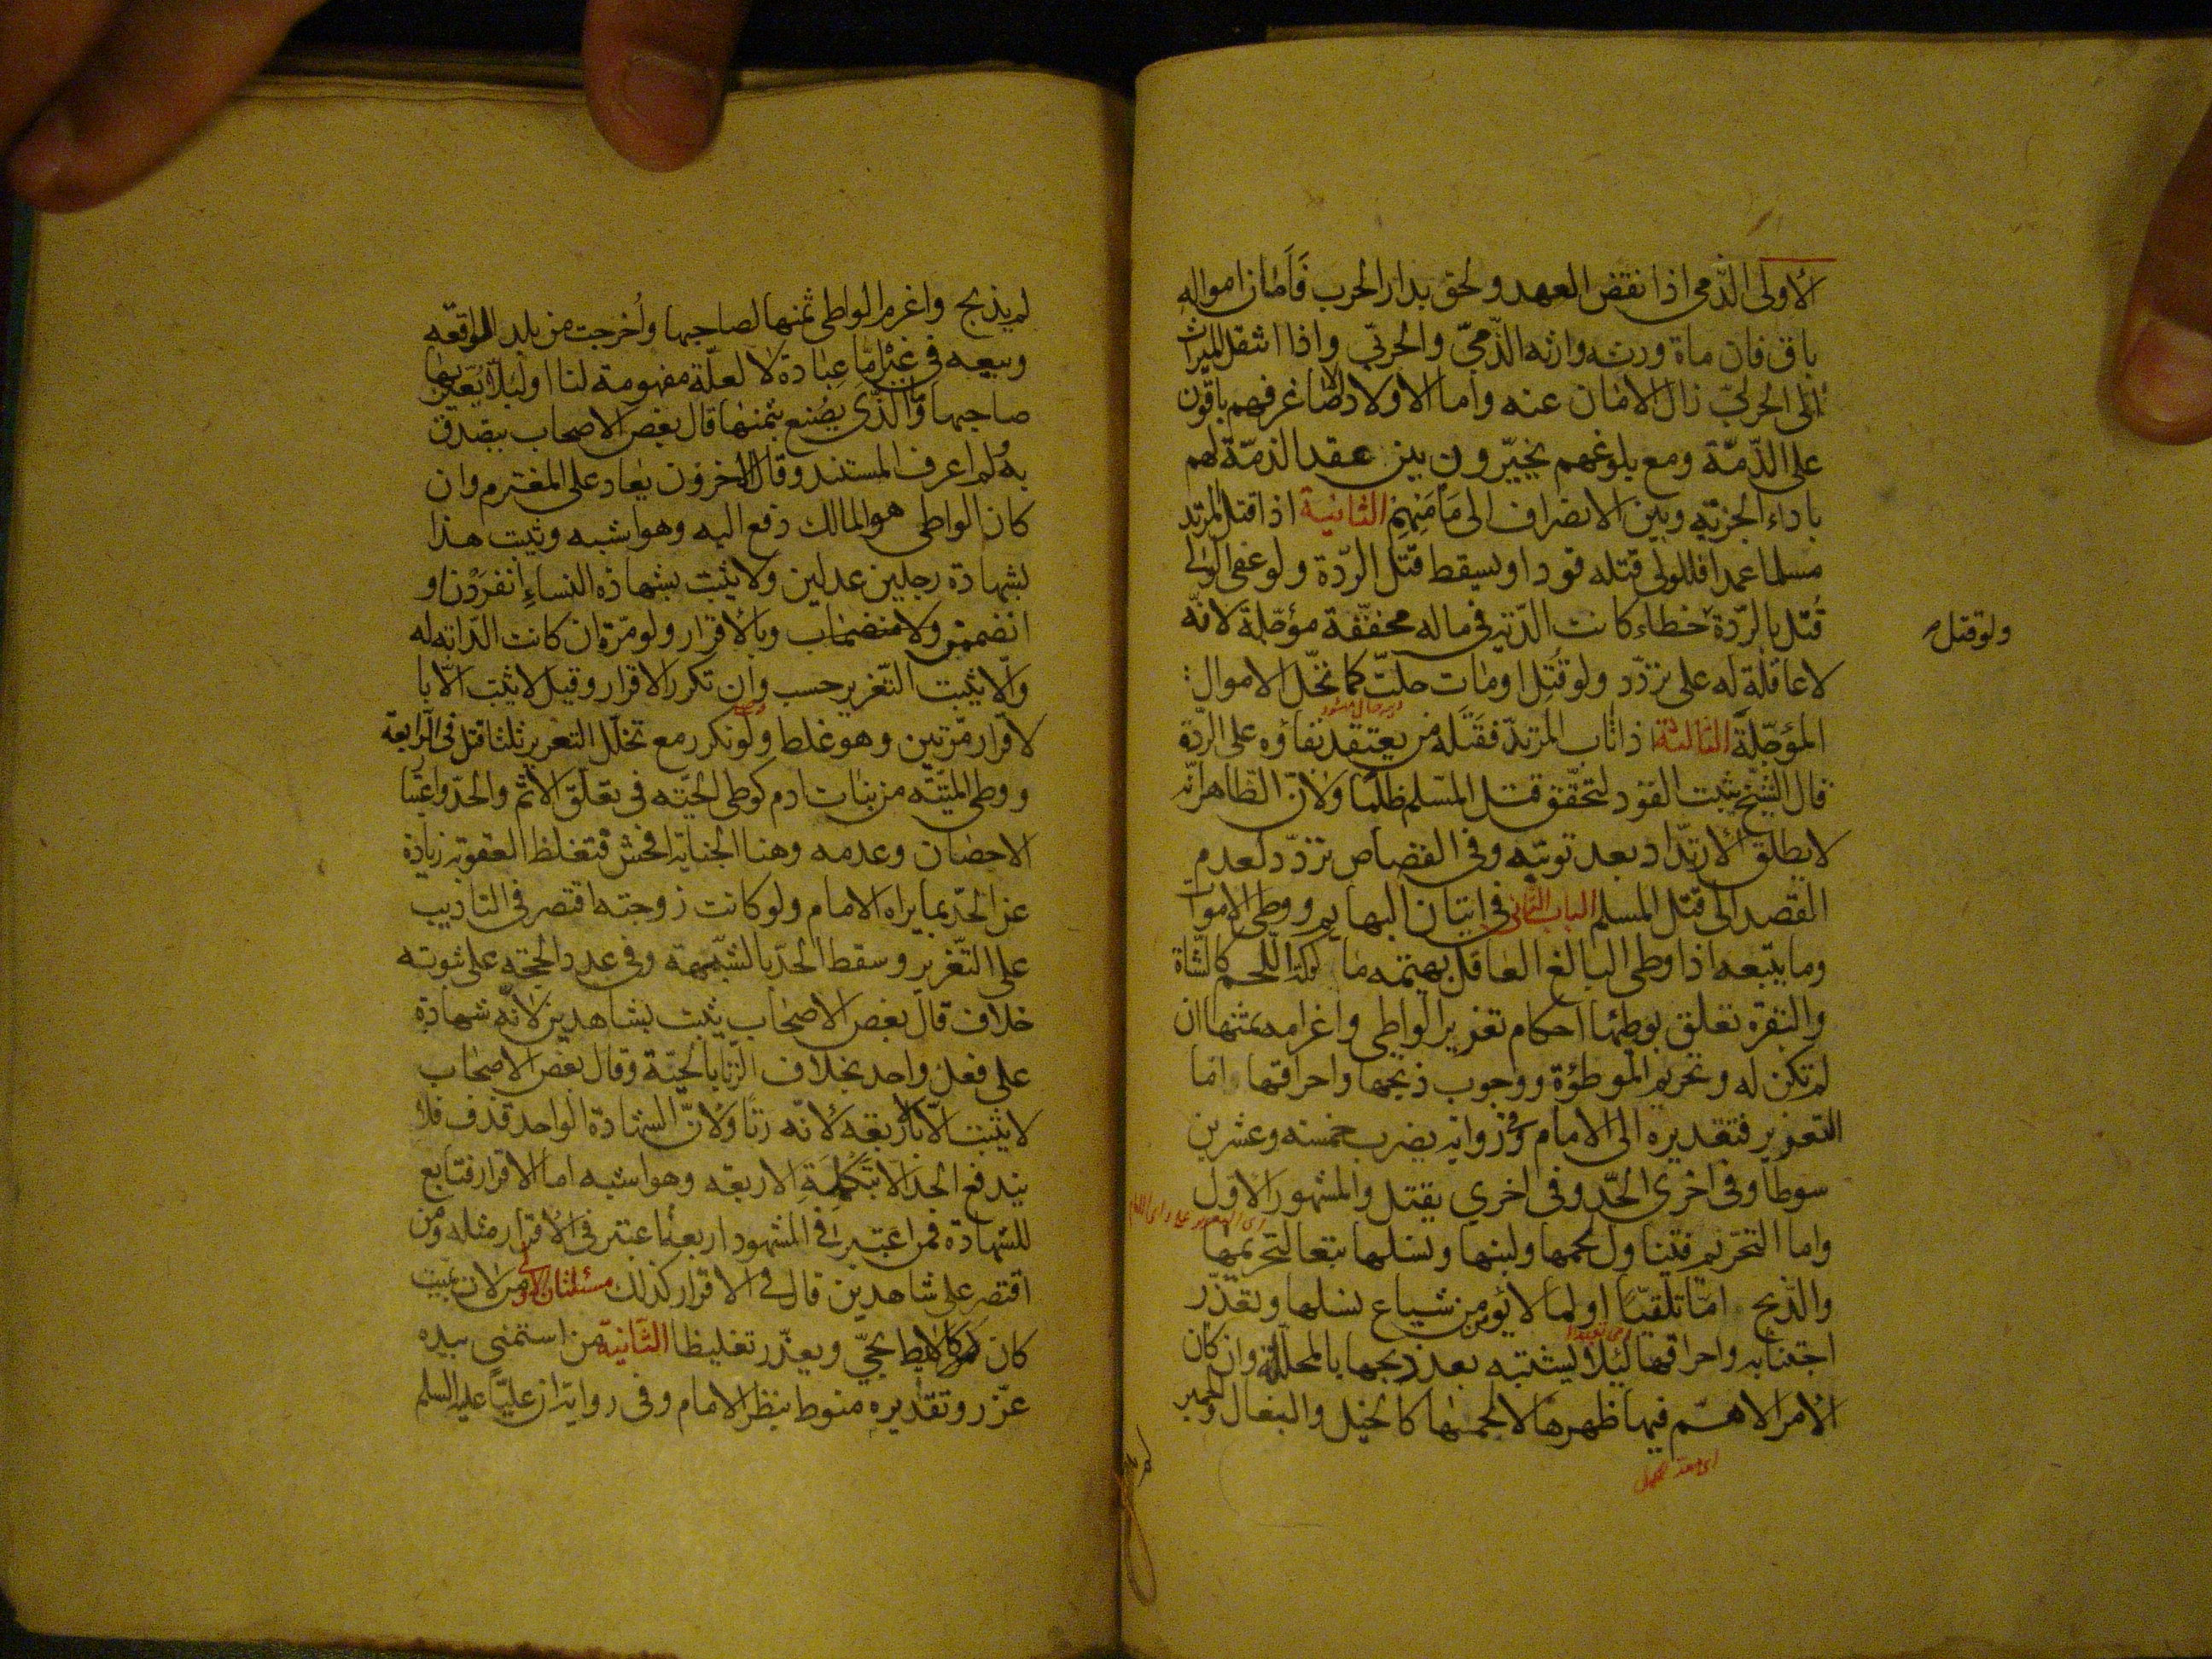 الاولى الذّمى اذا نقض العهد ولحق بدار الحرب فَاَمٰان امواله
باق فان ماة ورثه وارثه الذّميّ والحربّي واذا انتقل الميراث
الى الحربّي زال الامٰان عنه واما الاولاد الاصٰاغر فهم باقون
على الذّمّة ومع بلوغهم يخيّرون بين عقد الذمّة لهم
باداء الجزيّه وبين الانصراف الى مَأمَنِهِم الثانية اذا قتل المرتد
مسلما عمدا فللولى قتله قودا ويسقط قتل الردّة ولو عفى الولى
قُتل بالردّة خطاء كانت الدّيه فى ماله مخففّة مؤجّلة لانّه
ولو قتل
لا عاقلة له على تردّد ولو قُتِل او مٰات حلّت كما تحّل الاموال
المؤجّلة الثالثة اذا تٰاب المرتدّ فقَتَله من يعتقد بقاؤه على الردّة
قال الشيّخ يثبت القود لتحقّق قتل المسّلم ظلمًا ولانّ الظٰاهر انّه
لا يطلق الارتدٰاد بعد توبته وفى القصاص تردّد لعدم
القصد الى قتل المسلم الباب الثٰانى فى اتيٰان البهايم ووطى الاموات
وما يتبعه اذا وطى البالغ العٰاقل بهيمة مٰا كولة اللّحم كالشاة
والبقرة تعلق بوطئها احكام تعزير الواطى واغرامه ثمنها ان
لم تكن له وتحريم الموطؤة ووجوب ذبحها واحراقها امّا
التعزير فتقديره الى الامام وفى رواية يضرب خمسة وعشرين
سوطًا وفى اخرى الحّد وفى اخري يقتل والمشهور الاوّل
واما التحريم فتينا ول لحمها ولبنها ونسلها تبعا لتحريمها
والذّبح امّا تلقيًّا او لما لا يؤمن من شياع نسلها وتعذّر
اجتنابه واحراقها لئلا يشتبه بعد ذبحها بالمحلّلة وان كان
الامر الاهّم فيها ظهرها لا لحمها كالخيل والبغال والحمير
لم يذبح واغرم الواطى ثمنها لصاحبها واُخرجت من بلد الواقعّه
وبيعه فى غَيره امّا عبٰادة لا لعلّة مفهومة لنا او لئلّا يُعيّر بهٰا
صاحبها وَالذّى يصنع بثمنهٰا قال بعض الاصحاب يتصدق
به ولم اعرف المستند وقال الاخرون يعاد على المغترم وان
كان الواطى هو المالك دفع اليه وهو اشبه ويثبت هذا
بشهادة رجلين عدلين ولا يثبت بشهاده النساءِ انفردن او
انضممن ولا منضمٰاب وبالاقرار ولو مرّة ان كانت الدّابه له
والّا يثبت التّعزير حسب وان تكرر الاقرار وقيل لا يثبت الّا با
لاقرار مرّتين وهو غلط ولو تكرر مع تخلّل التعزير ثلثا قتل فى الرابعّة
ووطى الميّتّه من بنات ادم كوطى الحيّه فى تعلّق الاثم والحدّ واعتبا
الاحصٰان وعدمه وهنا الجناية افحش فتغلظ العقوبه زيادة
عن الحدّ بما يراه الامٰام ولو كانت زوجته اقتصر فى التٰاديب
على التّعزير وسقط الحدّ بالشبّهة وفى عدد الحجّة على ثبوته
خلاف قال بعض الاصحاب يثبت بشاهدين لانّه شهادة
على فعل واحد بخلاف الزّنا بالحيّة وقال بعض الاصحٰاب
لا يثبت الّا باربعة لانّه زنًا وَلانّ الشهٰادة الواحد قذف فلا
يندفع الحد الا بتكملة الاربعه وهو اشبه اما الاقرار فتابع
للشهادة فمن اعتبر فى المشهود اربعةً اعتبر فى الاقرار مثله ومن
اقتصر على شاهدين قال فى الاقرار كذلك مسئلتان الاولى من لاط بميت
كان كمن لاط بحىّ ويعزّر تغليظا الثانية من استمنى بيده
عزّر وتقديره منوط بنظر الامام وفى رواية ان عليّا عليه السلم